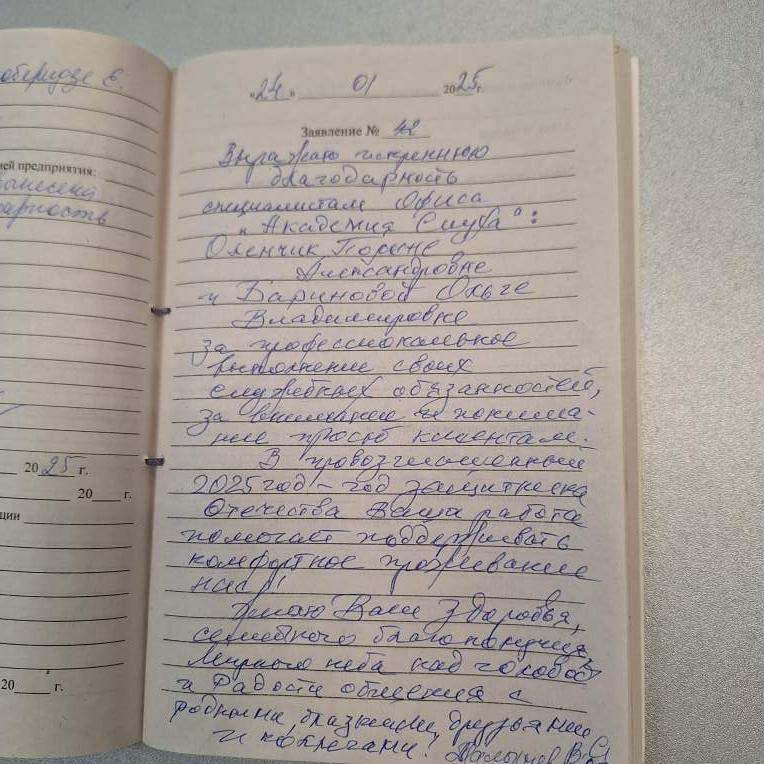 «24» 01 2025г.
Заявление № 42
Выражаю искреннюю
благодарность
специалистам Офиса
"Академия Слуха":
Оленчик
Александровне
и Бариновой Ольге
Владимировне
за профессиональное
выполнение своих
служебных обязанностей,
за внимание и понима-
ние просьб клиентам.
В провозглашенный
2025 год – год защитника
Отечества Ваша работа
помогает поддерживать
комфортное проживание
нас!
Желаю Вам здоровья,
семейного благополучия,
мирного неба над головой
и радости общения с
родными, близкими, друзьями
и коллегами!
ей предприятия:
20 25 г.
20 г.
ции
20 г.